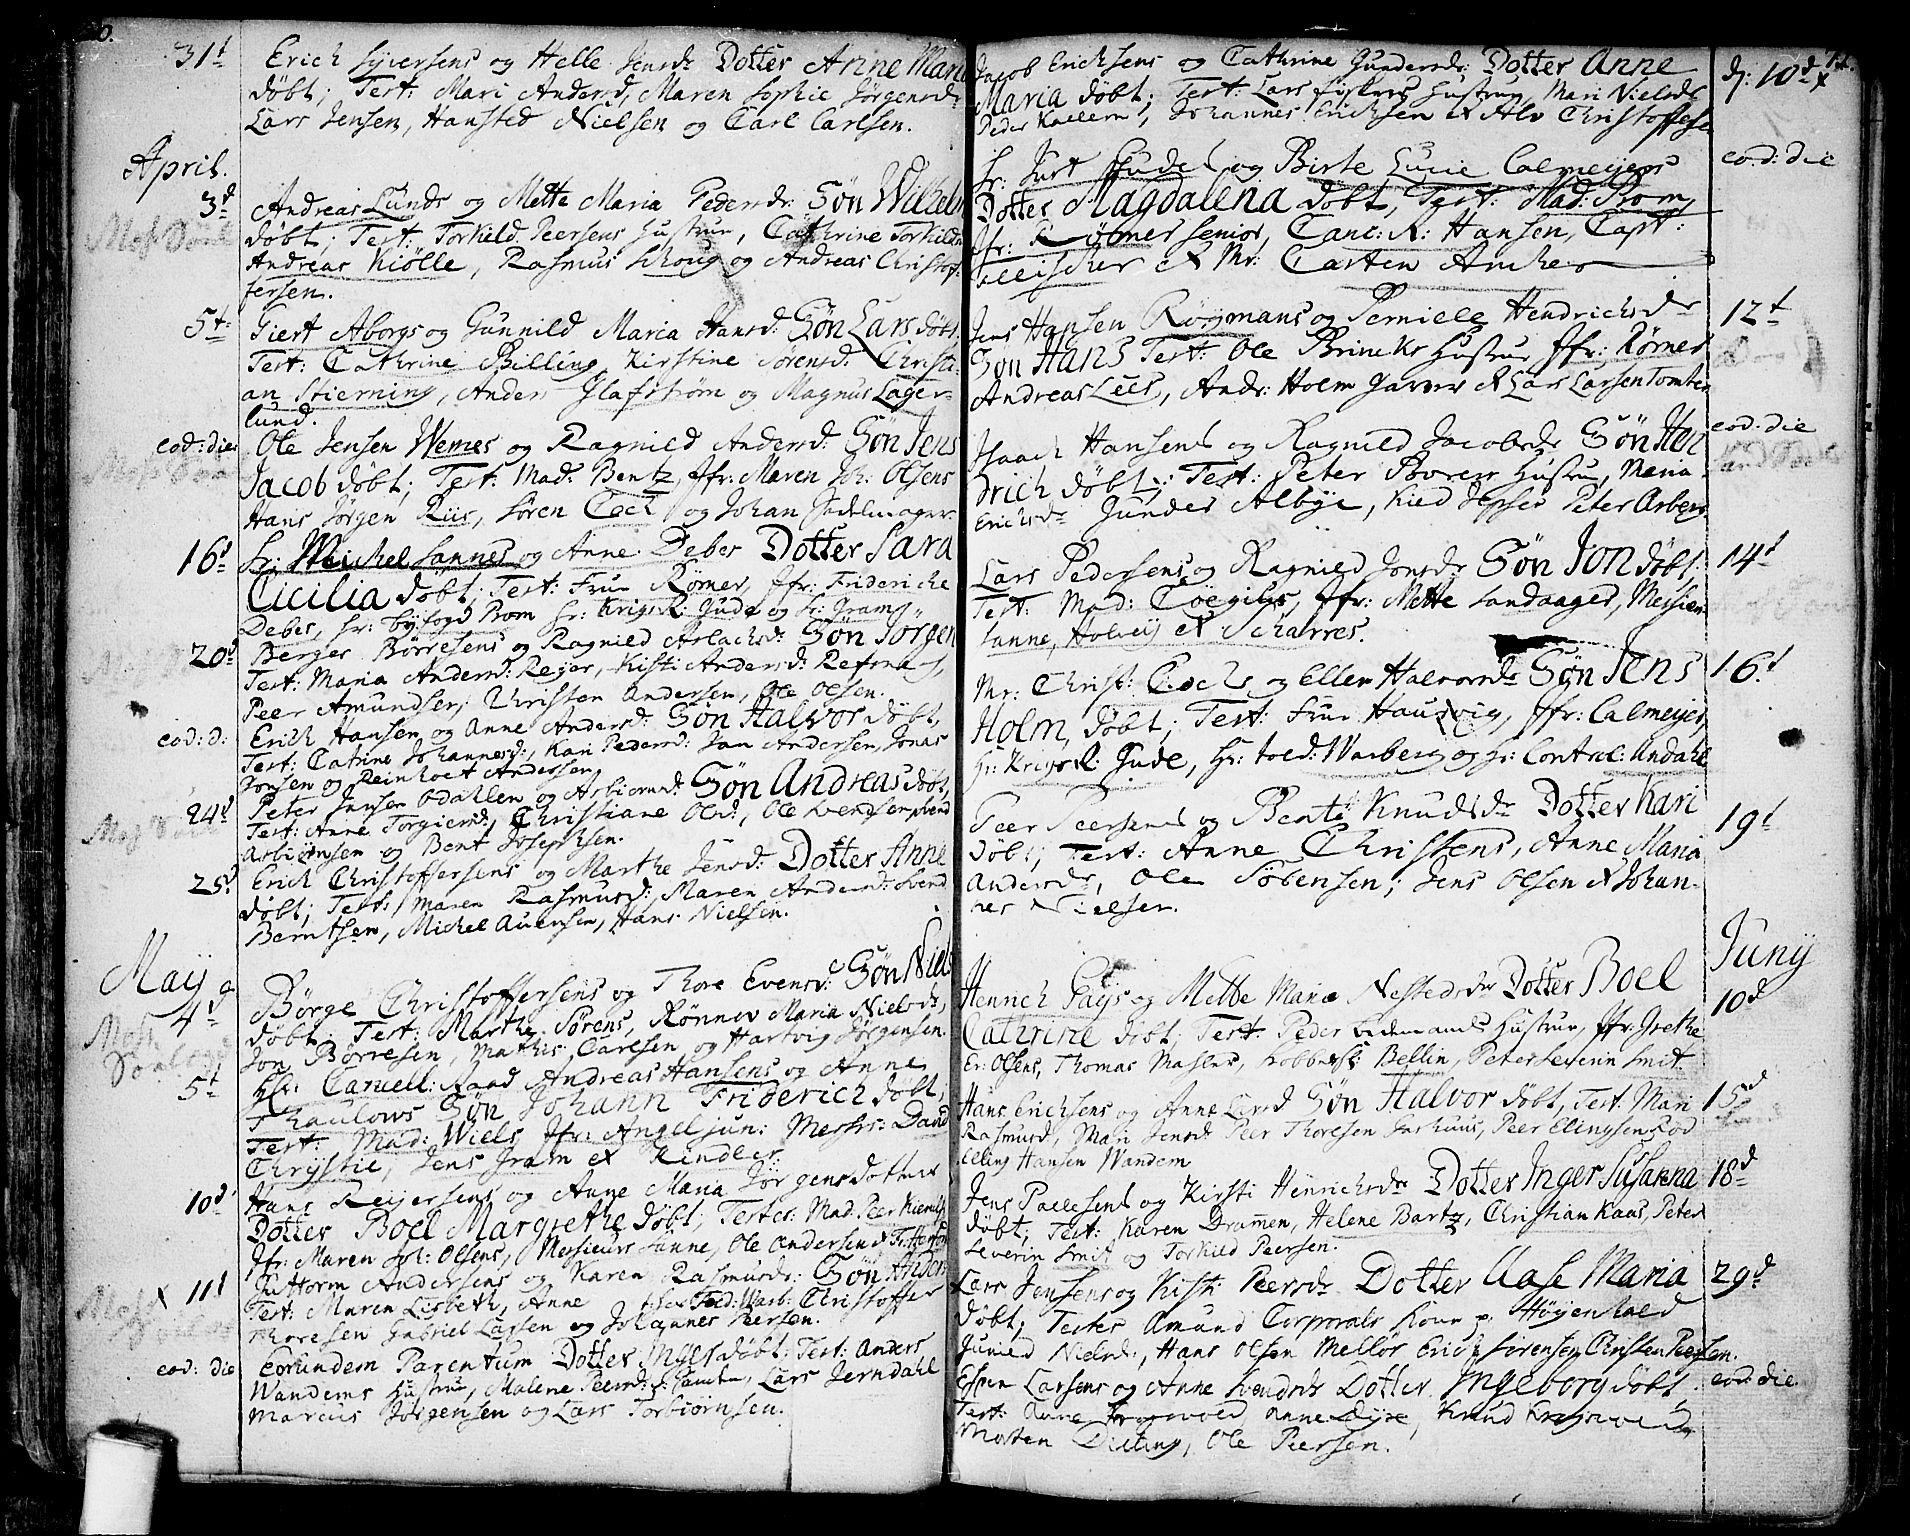 31t Erich Syversens og Helle Jensdr Dotter Anne Marie
döbt; Test: Mari Andersd, Maren Sophie Jörgensd:
Lars Jensen, Hansted Nielsen og Carl Carlsen.
April.
3d Andreas Lunds og Mette Maria Pedersdr: Sön Wilhelm
döbt; Test: Torkild Peersens Hustrue, Cathrine Torkilds
Andreas Kiölle, Rasmus Schoug og Andreas Christof-
fersen.
5t Giert Aborgs og Gunnild Maria Hansd: Sön Lars döbt,
Test: Cathrine Billing, Kirstine Sörensd: Christi-
an Stierning, Anders Glafström og Magnus Lager-
lund.
eod: die Ole Jensen Wernes og Ragnild Andersd: Sön Jens
Jacob döbt; Test: Mad: Bentz, Jfr: Maren Sch: Olsens
Hans Jörgen Riis, Sören Coch og Johan Sadelmager.
16d Hr: Michel Sannes og Anne Debes Dotter Sara
Cicilia döbt; Test: Frue Römer, Jfr: Frideriche
Debes, Hr: byfogd Prom Hr: KrigsR: Gude og Hr: Gram
20d Berger Börresens og Ragnild Aslachsd: Sön Jörgen
Test: Maria Andersd: Rejer, Kisti Andersd: Refsnes,
Peer Amundsen, Christen Andersen, Ole Olsen.
eod: d: Erich Hansen og Anne Andersd: Sön Halvor döbt,
Test: Catrine Johannesd:, Kari Pedersd: Jan Andersen, Jonas
Jonsen og Reinholt Anderssen
24d Peter Jansen Odahlen og Asbiornsd: Sön Andreas döbt,
Test: Anne Torgiersd:, Christiane Olsd:, Ole Svendsen, Svend
Asbiörnsen og Bent Josephsen.
25d Erich Christoffersens og Marthe Jensd: Dotter Anne
döbt; Test: Maren Rasmusd: Maren Andersd: Svend
Berntsen, Michel Auensen, Hans Nielsen.
May
4d Börge Christoffersens og Thore Evensd: Sön Niels
döbt, Test: Marthe Sörens, Rönnev Maria Nielsdr,
Jon Börresen, Mathis Carlsen og Hartvig Jörgensen.
5t Hr: Cancell: Raad Andreas Hansens og Anne
Thaulows Sön Johann Friderich döbt;
Test: Mad: Wiels, Jfr: Angel jun: Messrs: David
Chrystie, Jens Gram et Kindler.
10d Hans Reijersens og Anne Maria Jörgensdotters
Dotter Boel Margrethe döbt; Testes: Mad: Peer
Jfr: Maren Sch: Olsens, Messieurs Sanne, Ole Andersen &
x 11t Guttorm Andersens og Karen Rasmusdr: Sön Anders
Test: Maren Lisbeth, Anne Christoffer
Thoresen Gabriel Larsen og Johannes Peersen.
eod: die Eorundem Parentum Dotter Inger döbt; Test: Anders
Wandems Hustrue, Malene Peersd: Lars Jerndahl
Marcus Jörgensen og Lars Torbiörnsen.
Jacob Erichsens og Cathrine Gundersdr: Dotter Anne d: 10d x
Maria döbt; Test: Lars Fiskers Hustrue, Mari Nielsdr
Peder Kallem, Johannes Erichsen & Alv Christoffersen
Hr: Jurt Gudes og Birte Lucie Calmeyers eod: die
Dotter Magdalena döbt, Test: Mad: Prom,
Jfr: Römer senior, Canc: R: Hansen, Capt:
Tillischer & Mr: Carsten Ancher
Jens Hansen Rörgmans og Pernille Hendrichsdr 12t
Sön Hans Test: Ole Brincks Hustrue Jfr: Römer
Andreas Lies, Andr: Holm Garver & Lars Larsen Tomter
Isaach Hansens og Ragnild Jacobsdr Sön Hen eod: die
drich döbt; Test: Peter Povers Hustrue, Maria
Erichsdr Gunder Albye, Kield Jepsers Peter Asbers
Lars Pedersens og Ragnild Jonsdr Sön Jon döbt. 14d
Test: Mad: Coegilus, Jfr: Mette Sandaager, Messieu:
Sanne, Holvey et Scharres.
Mr: Christ: Cochs og Ellen Halvorsdr Sön Jens 16d
Holm, döbt; Test: Frue Hausvig, Jfr: Calmeyer,
Hr: KrigsR: Gude, Hr: Told: Warberg og Hr: Control: Andahl
Peer Peersens og Bente Knudsdr Dotter Kari 19d
döbt; Test: Anne Christens, Anne Maria
Andersdr, Ole Törensen; Jens Olsen & Johan-
nes Nielsen.
Juny
Henrich Pays og Mette Maria Nestedsdr Dotter Boel 10d
Cathrine döbt; Test: Peder Bedemands Hustrue, Jfr: Grethe
Er: Olsens, Thomas Masler, Bellin, Peter Severin Smit.
Hans Erichsens og Anne Larsd Sön Halvor döbt, Test: Mari 15d
Rasmusd, Mari Jensdr Peer Thoresen Parhuus, Peer Elingsen Rod
Elling Hansen Wandem
Jens Pallesens og Kirsti Henrichsdr Dotter Inger Susanna 18d
döbt; Test: Karen Drammen, Helene Bartz, Christian Kaas, Peter
Severin Smit og Torkild Peersen.
Lars Jensens og Kisti Peersdr Dotter Aase Maria 29d
döbt; Testes Amund Corporals Kone p: Höyenhald
Gunild Nielsd:, Hans Olsen Mellös Erich Sörensen, Christen Peersen.
Espen Larsens og Anne Svendsdr Dotter Ingeborg döbt. eod: die
Test: Anne Krogsvold, Anne Dyre, Knud Krogsvold
Morten Dilling, Ole Peersen.